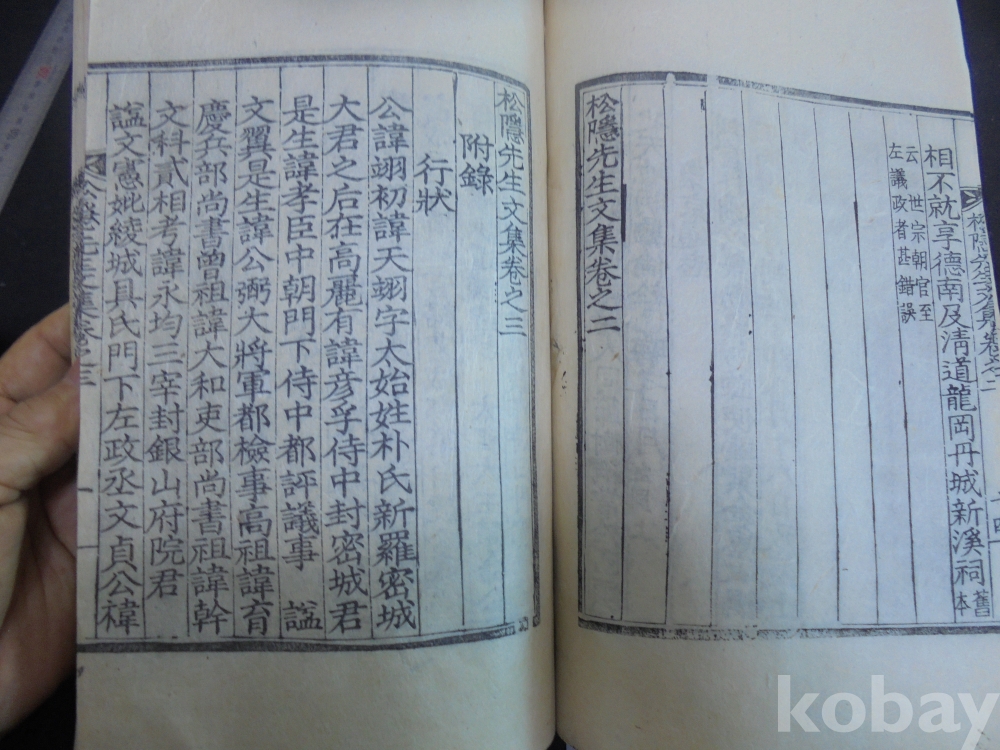 相不就享德南及清道龍岡丹城新溪祠舊本
云 世宗朝官至
左議政者甚錯誤
松隱先生文集卷之二
松隱先生文集卷之三
附錄
行狀
公諱翊初諱天翊字太始姓朴氏新羅密城
大君之后在高麗有諱彦孚侍中封密城君
是生諱孝臣中朝門下侍中都評議事 謚
文翼是生諱公弼大將軍都檢事高祖諱育
慶兵部尚書曾祖諱大和吏部尚書祖諱幹
文科貳相考諱永均三宰封銀山府院君
謚文憲妣綾城具氏門下左政丞文貞公褘
kobay